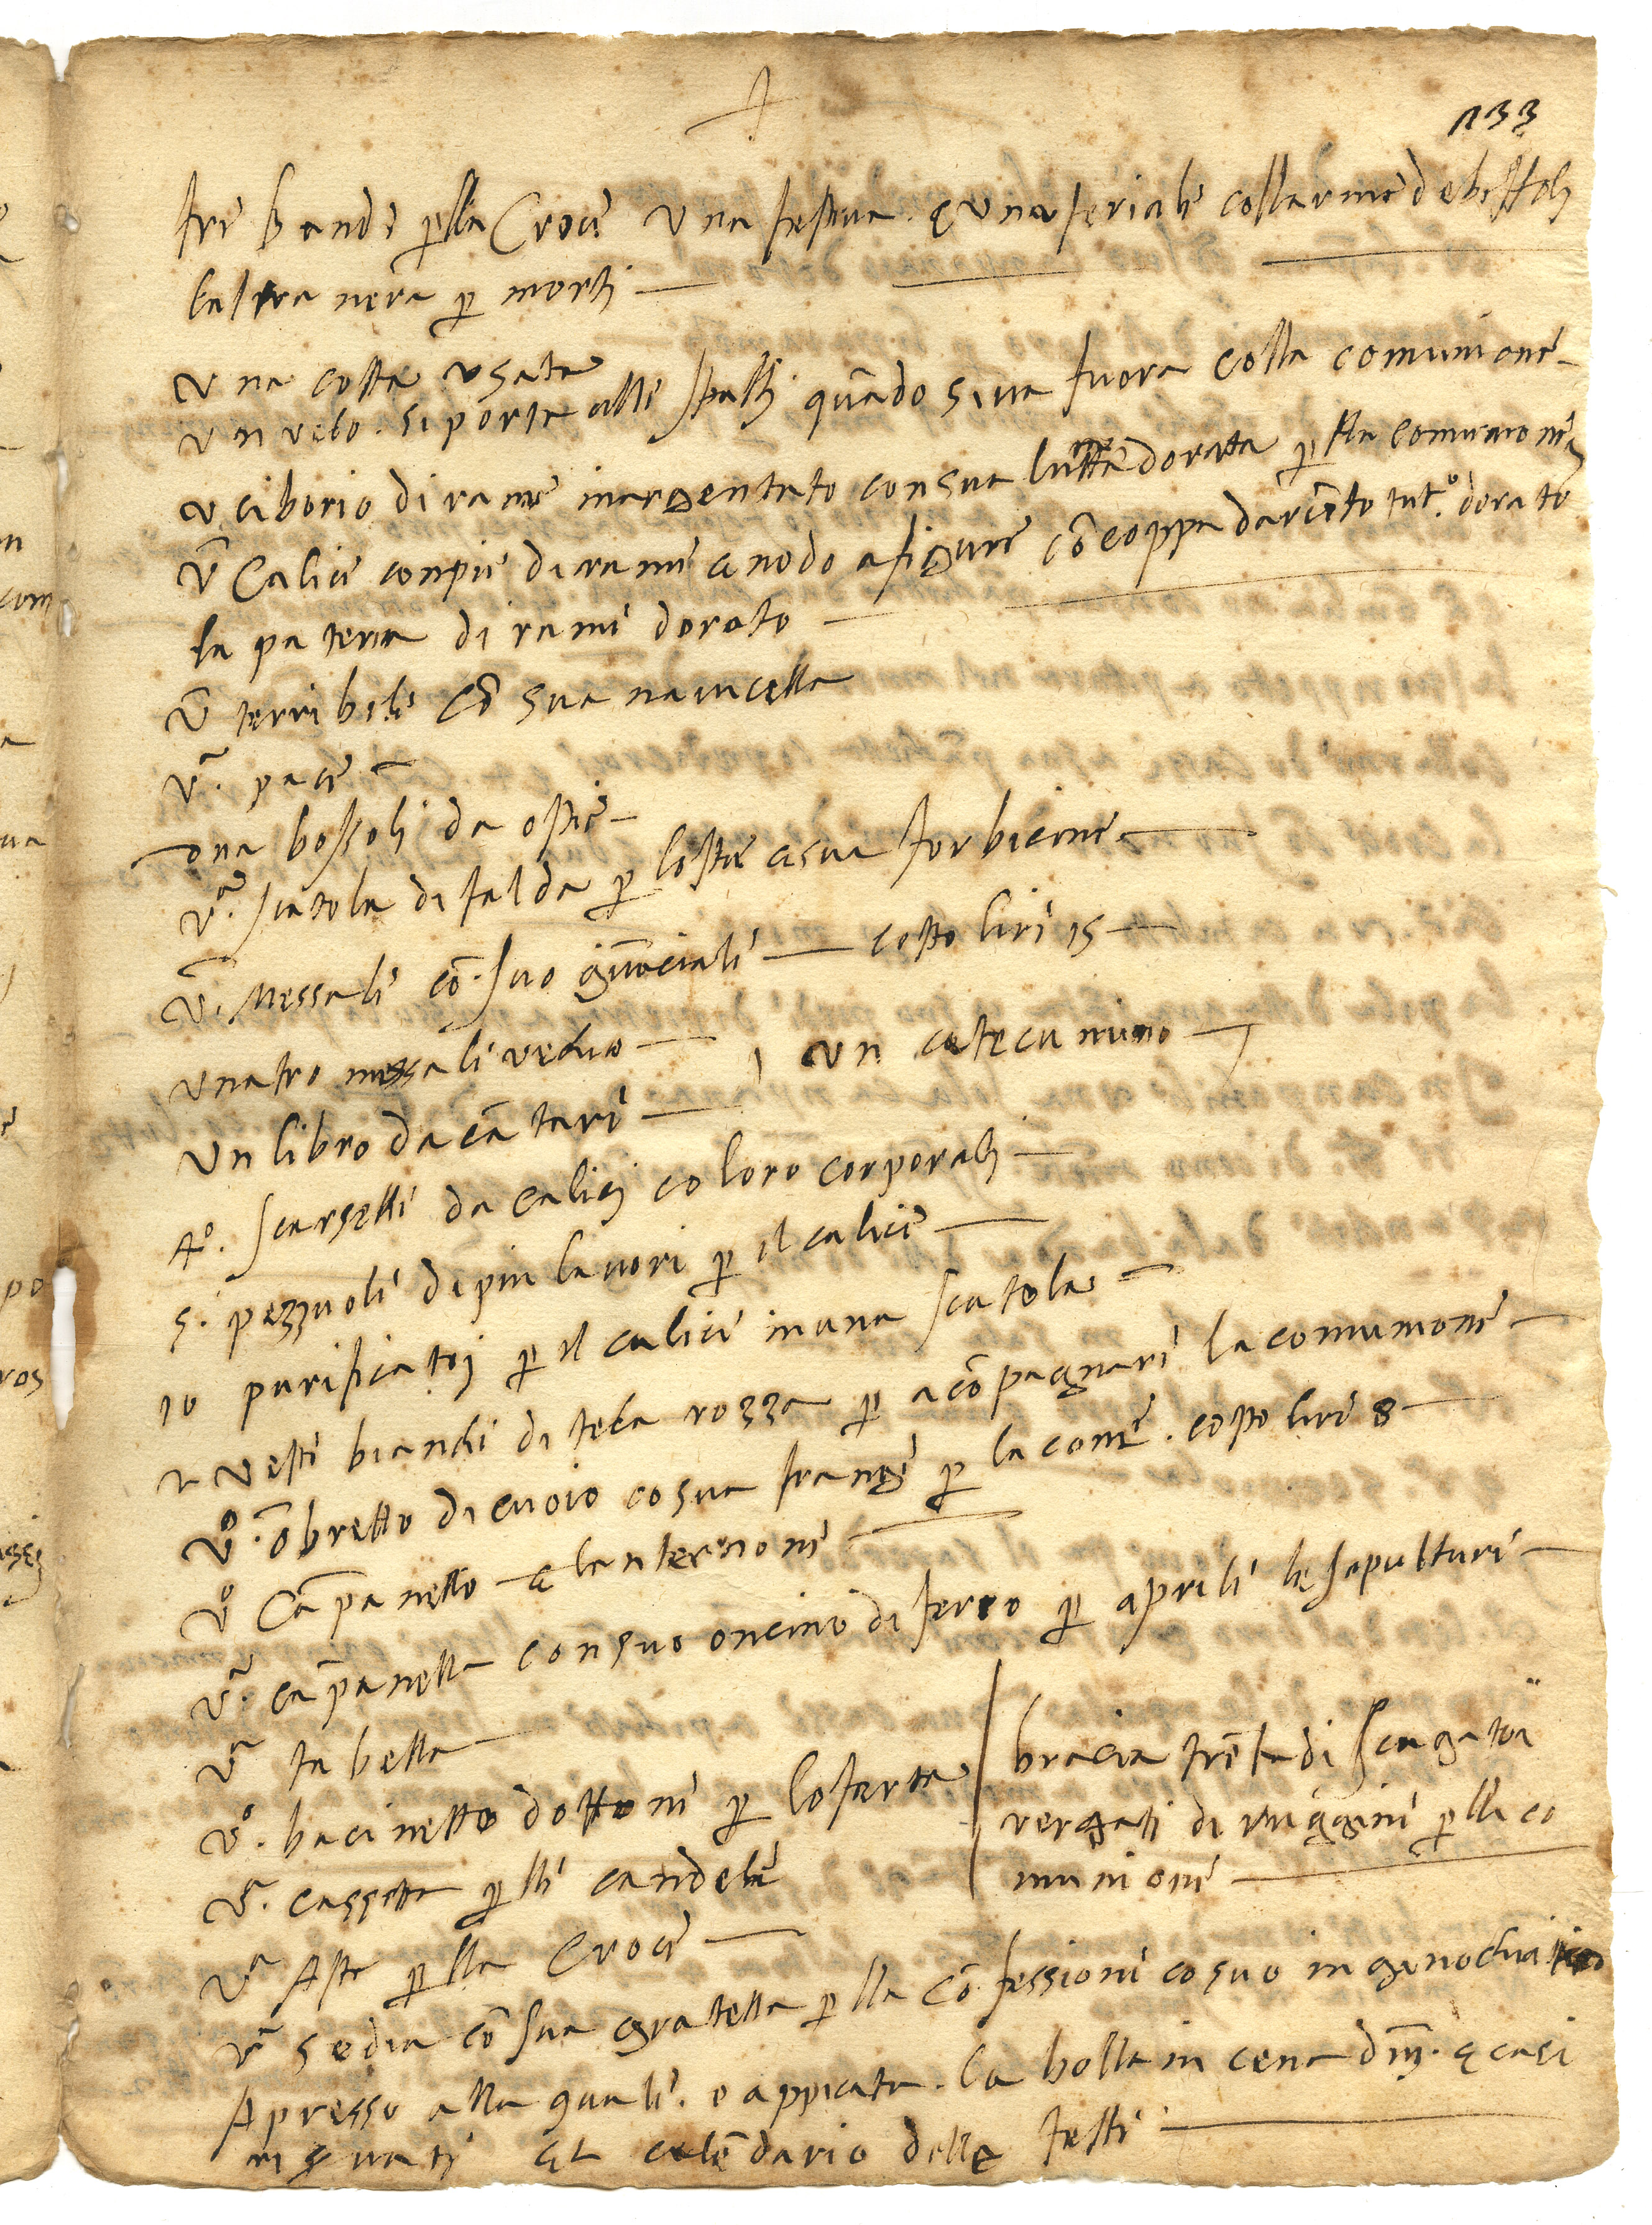 133
tre bande p̱lla Croce una festiva. e una feriale coll arme de
laltra nera p̱ morti
una cotta usata
un velo. si porta alle spalle quãdo si va fuora colla comunione
u ciborio di rame inargentato con sua dorata p̱ lla comunione
ũ Calice con pie di rame e nodo a figure cõ coppa darcẽto tutº. dorato
la patena di rame dorato
ũ terribile cõ sua navicella
vª. pace
ona bossoli da ostie
vª. scatola di falda p̱ lostie e sua forbicine
ũ. Messale cõ. suo guãciale costo lire 15
unatro messale vechio
un libro da cãtare un catecumino
4º. scarselle da calici co loro corporali
5. pezzuole di piu lavori p̱ il calice
10 purificatoi p̱ il calice in una scatola
2 veste bianche di tela rozza p̱ acõpagnare la comunione
vº. õbrello di cuoio co sua frange p̱ la come. costo lire 8
vº cãpanello e lanternone
vª. cãpanella con suo oncino di ferro p̱ aprile le sepulture
vª tabella
vº. bacinetto dottone p̱ loferta
vª. cassetta p̱lle candele
bracia trẽta di sciugatoi
vergati di ruggine p̱lle co
munione
vª Aste p̱lla Croce
vª sedia cõ sua gratella p̱ lla cõfessione co suo inginochiatoio
Apresso alla quale. e appicata. la bolla in cena dm̃. e casi
riservati el calẽdario delle feste